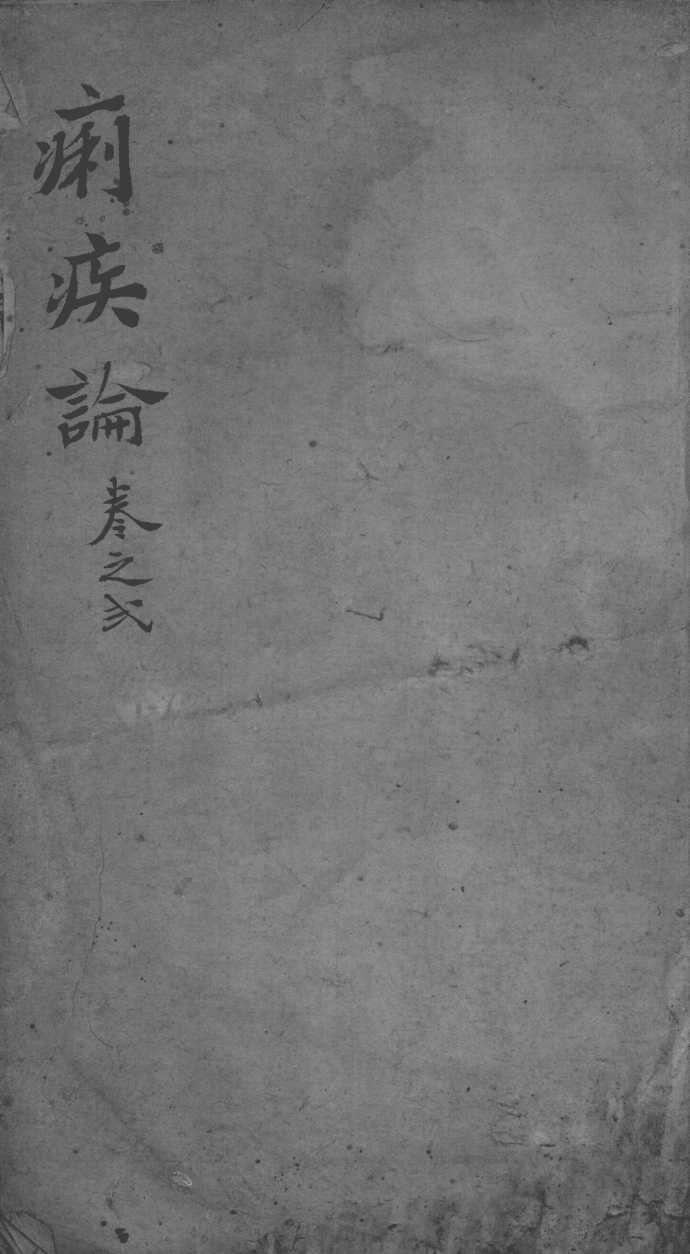 痢疾論卷之弍